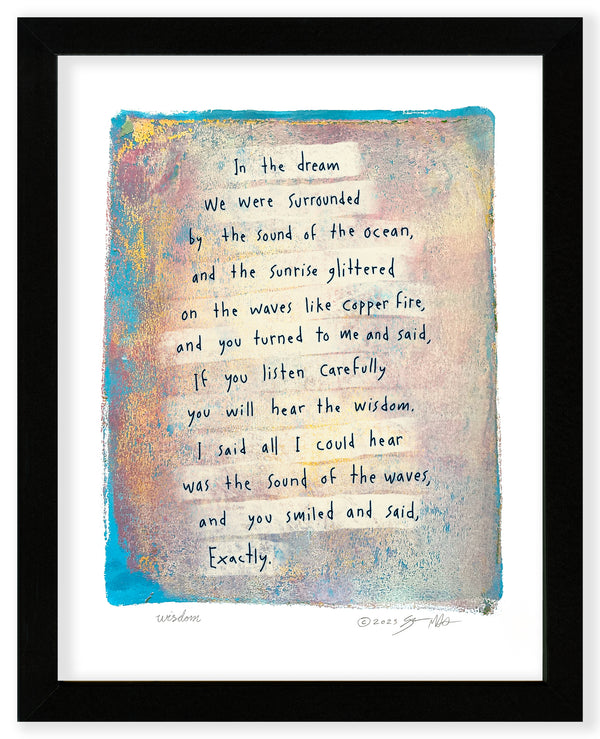 In the dream
we were surrounded
by the sound of the ocean,
and the sunrise glittered
on the waves like copper fire,
and you turned to me and said,
If you listen carefully
you will hear the wisdom.
I said all I could hear
was the sound of the waves,
and you smiled and said,
Exactly.
wisdom
©2023